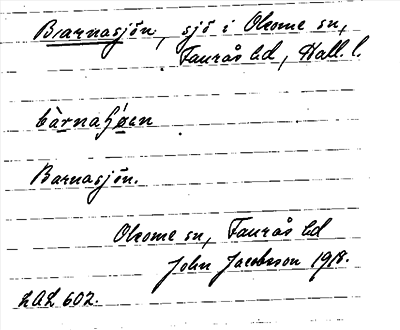 Barnasjön, sjö i Okome sn,
Faurås hd, Hall. l.
Barnasjön.
Okome sn, Faurås hd
John Jacobsson 1918.
LAL 602.